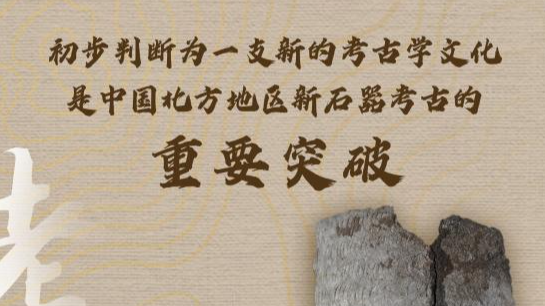 初步判断为一支新的考古学文化
是中国北方地区新石器考古的
重要突破
考